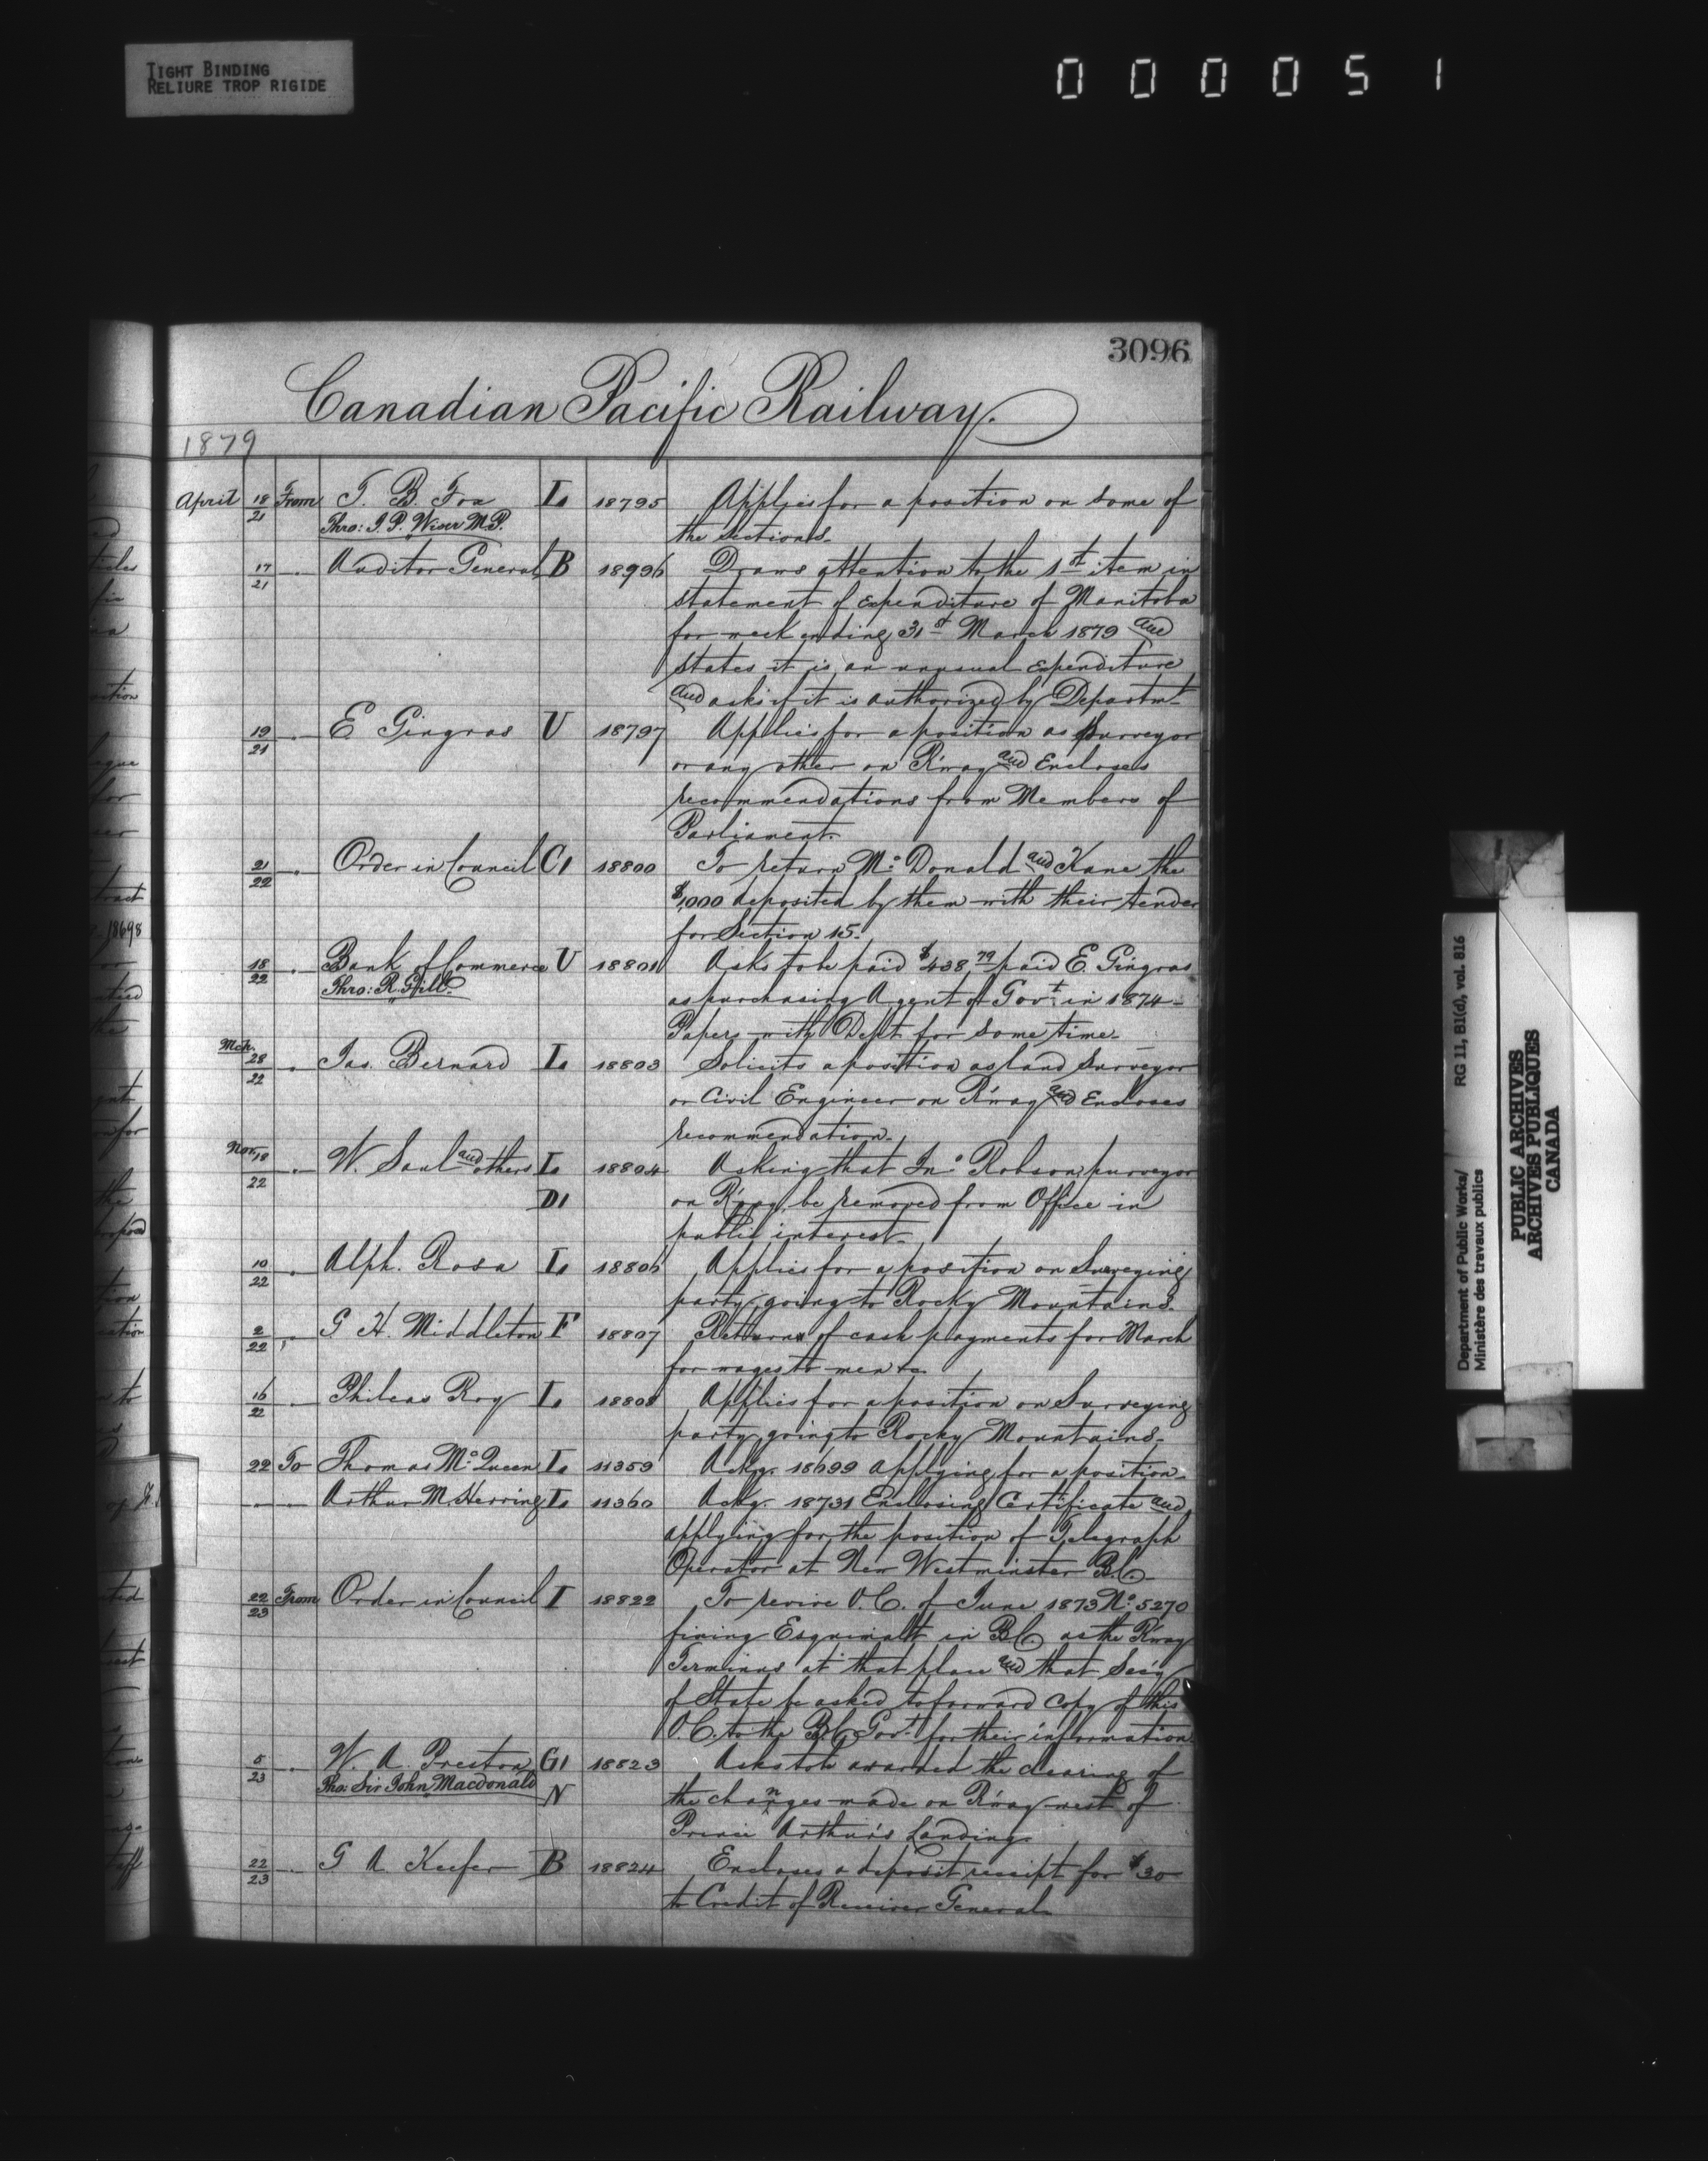 TIGHT BINDING
RELIURE TROP RIGIDE
000051
3096
Canadian Pacific Railway.
1879
April 18/21 From T. B. Fox L 18795 Applies for a position on some of
Thro: J. P. Wiser M.P. the sections.
17/21 " Auditor General B 18796 Draws attention to the 1st item in
statement of expenditure of Manitoba
for week ending 31st March 1879 and
states it is an unusual expenditure
and asks if it is authorized by Departmt
19/21 " E Gingras U 18797 Applies for a position as surveyor
or any other on R'way and Encloses
recommendations from Members of
Parliament.
21/22 " Order in Council C1 18800 To return Mc Donald and Kane the
$1,000 deposited by them with their tender
for Section 15.
18/22 " Bank of Commerce U 18801 Asks to be paid $438.79 paid E. Gingras
Thro: R. Gill. as purchasing Agent of Govt in 1874
Papers with Dept for some time.
Mch. 28/22 " Jas. Bernard L 18803 Solicits a position as land Surveyor
or Civil Engineer on R'way and Encloses
recommendation.
Nov. 18/22 " W. Saul and others L 18804 Asking that Jno Robson, purveyor
D1 on R'way, be removed from Office in
public interest.
10/22 " Alph. Rosa L 18806 Applies for a position on Surveying
party going to Rocky Mountains.
2/22 " G H. Middleton F 18807 Returns of cash payments for March
for wages to men &c.
16/22 " Phileas Roy L 18808 Applies for a position on Surveying
party going to Rocky Mountains.
22 To Thomas Mc Queen L 11359 Ackg. 18699 applying for a position.
" " Arthur M. Herring L 11360 Ackg. 18731 Enclosing Certificate and
applying for the position of Telegraph
Operator at New Westminster B.C.
22/23 From Order in Council I 18822 To revive O.C. of June 1873 No 5270
fixing Esquimalt in B.C. as the R'way
Terminus at that place and that Sec'y
of State be asked to forward copy of this
O.C. to the B.C. Govt. for their information
5/23 " W. A. Preston G1 18823 Asks to be awarded the clearing of
Thro: Sir John Macdonald N the changes made on R'way west of
Prince Arthur's Landing.
22/23 " G A Keefer B 18824 Encloses a deposit receipt for $30
to Credit of Receiver General.
18698
Department of Public Works/ RG 11, B1(d), vol. 816
Ministère des travaux publics
PUBLIC ARCHIVES
ARCHIVES PUBLIQUES
CANADA